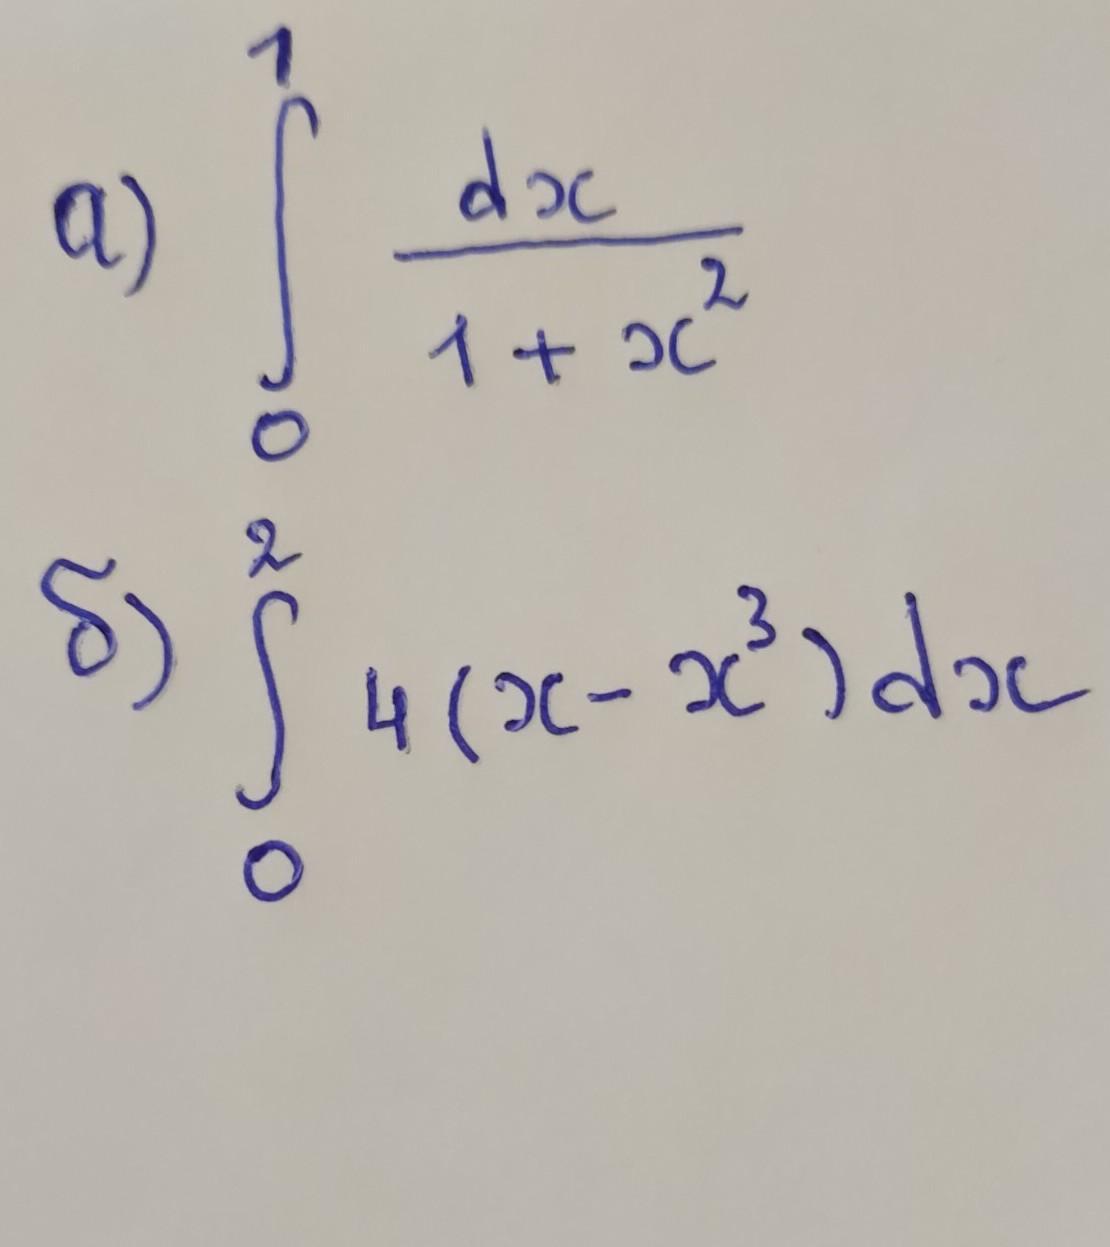 а) ∫₀¹ dx / (1 + x²)
б) ∫₀² 4(x - x³) dx